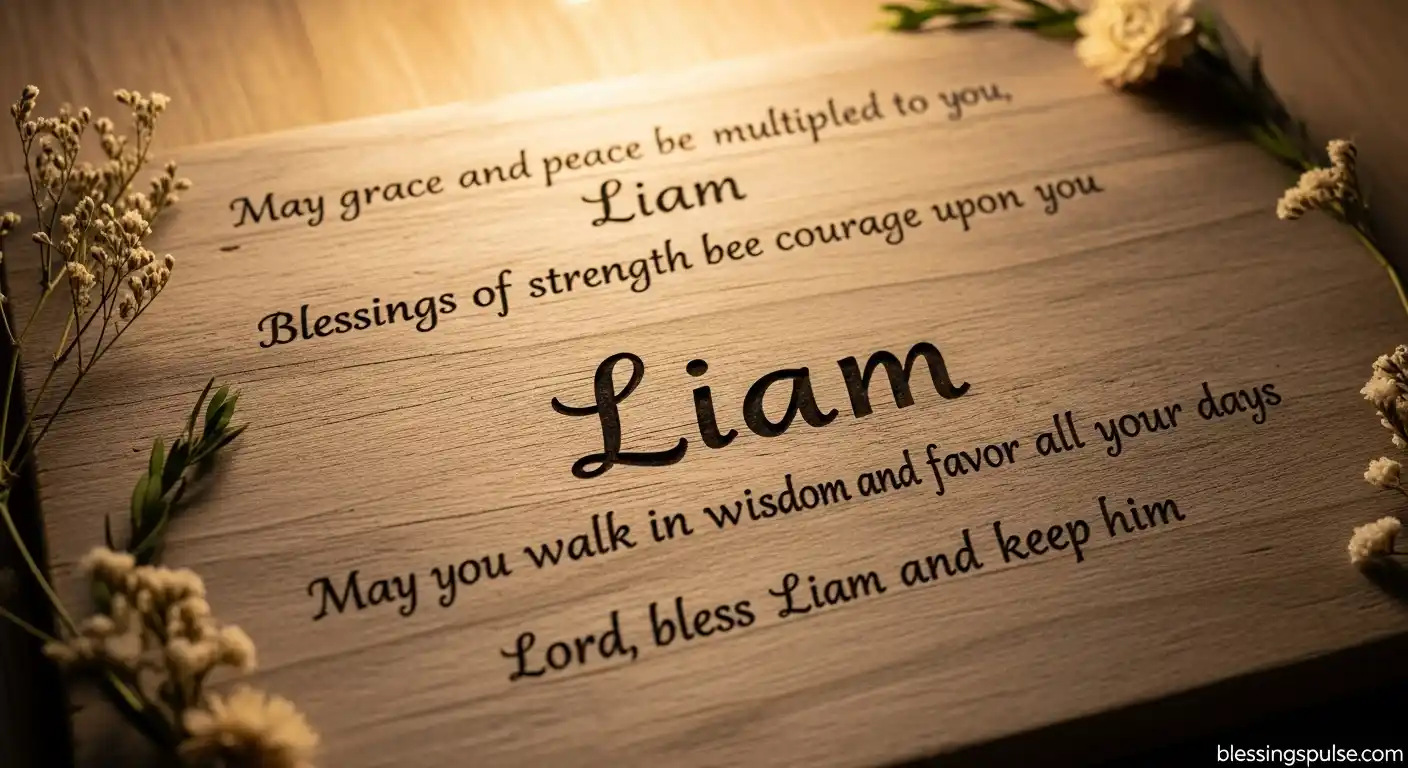 May grace and peace be multipled to you,
Liam
Blessings of strength bee courage upon you
Liam
May you walk in wisdom and favor all your days
Lord, bless Liam and keep him
blessingspulse.com